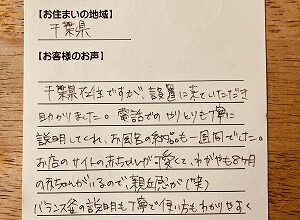 【お住まいの地域】
千葉県
【お客様のお声】
千葉県在住ですが、設置に来ていただき
助かりました。電話でのやりとりも丁寧に
説明してくれ、お風呂の納品も一週間でした。
お店のサイトの赤ちゃんが可愛くて、わが家も8ヶ月
の赤ちゃんがいるので親近感が(笑)
バランス釜の説明も丁寧で使い方もわかりやすく